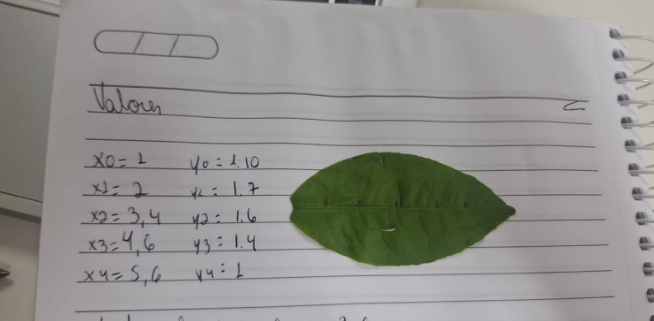 Valores
x0= 1 y0= 1.10
x1= 2 y1= 1.7
x2= 3,4 y2= 1.6
x3= 4,6 y3= 1.4
x4= 5,6 y4= 1